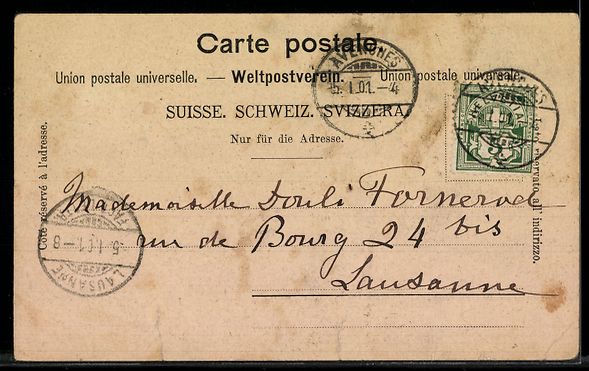 Carte postale.
Union postale universelle. — Weltpostverein. — Union postale universale.
SUISSE. SCHWEIZ. SVIZZERA.
Nur für die Adresse.
Côté réservé à l'adresse.
Lato riservato all' indirizzo.
AVENCHES
5. I. 01. – 4
5
LAUSANNE
5. I. 01 – 8
Mademoiselle Fornerod
rue de Bourg 24 bis
Lausanne